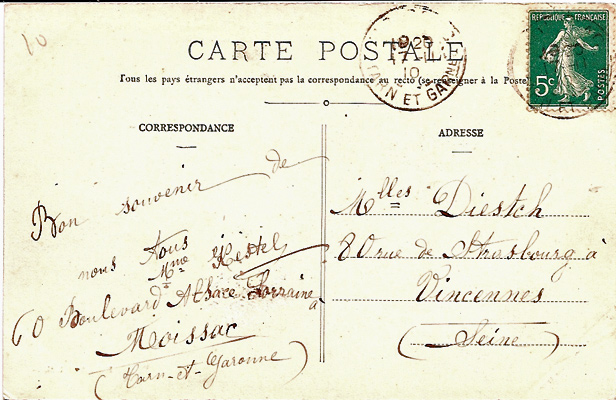 10
CARTE POSTALE
Tous les pays étrangers n'acceptent pas la correspondance au recto (se renseigner à la Poste)
RÉPUBLIQUE FRANÇAISE
5c
POSTES
10
TARN ET GARNE
CORRESPONDANCE
ADRESSE
Bon souvenir de
nous Tous
Mme Kestel
60 Boulevard Alsace-Lorraine à
Moissac
(Tarn-et-Garonne)
Mlles Diestch
80 rue de Strasbourg à
Vincennes
(Seine)